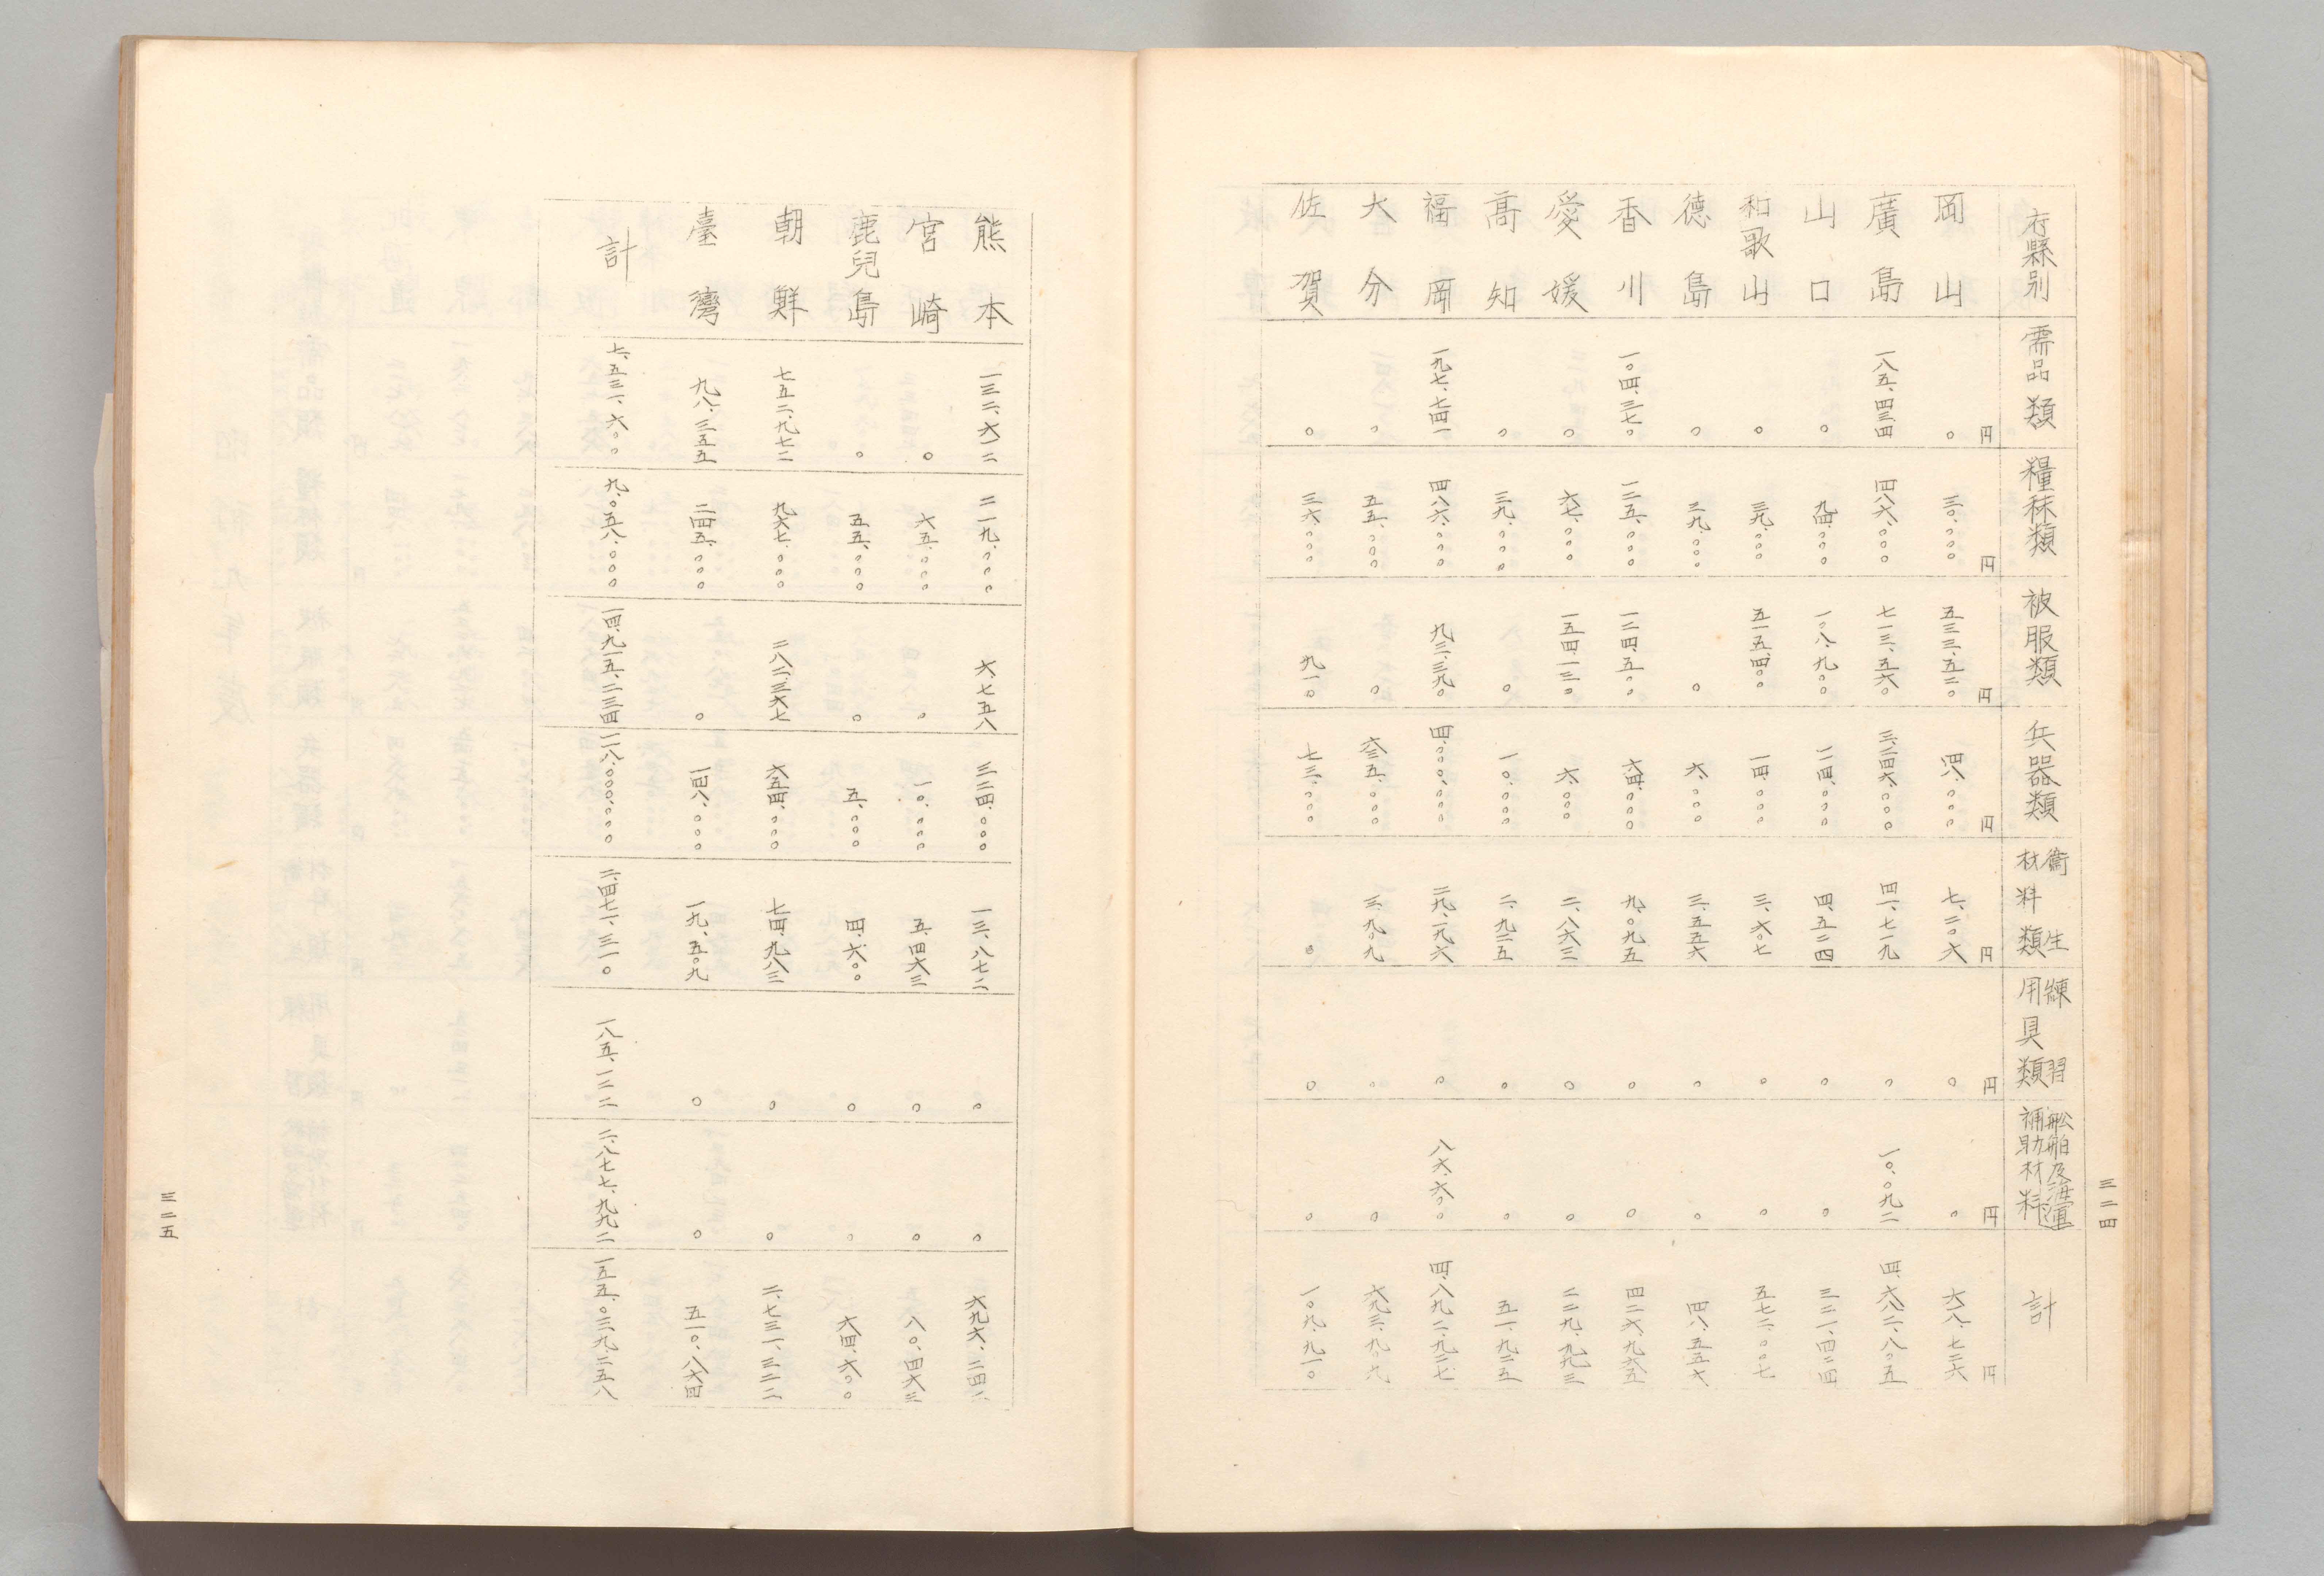 三二四
府縣別 需品類 糧秣類 被服類 兵器類 衞生材料類 練習用具類 船舶及海運補助材料 計
岡山 〇円 三〇、〇〇〇円 五三三、五二〇円 四八、〇〇〇円 七、二〇六円 〇円 〇円 六一八、七二六円
廣島 一八五、四三四 四八六、〇〇〇 七一三、五六〇 三、二四六、〇〇〇 四一、七一九 〇 一〇、〇九二 四、六八二、八〇五
山口 〇 九四、〇〇〇 一〇八、九〇〇 一一四、〇〇〇 四、五二四 〇 〇 三二一、四二四
和歌山 〇 三九、〇〇〇 五一五、四〇〇 一四、〇〇〇 三、六〇七 〇 〇 五七二、〇〇七
德島 〇 三九、〇〇〇 〇 六、〇〇〇 三、五五六 〇 〇 四八、五五六
香川 一〇四、三七〇 一二五、〇〇〇 一二四、五〇〇 六四、〇〇〇 九、〇九五 〇 〇 四二六、九六五
愛媛 〇 六七、〇〇〇 一五四、一三〇 六、〇〇〇 二、八六三 〇 〇 二二九、九九三
高知 〇 三九、〇〇〇 〇 一〇、〇〇〇 二、九二五 〇 〇 五一、九二五
福岡 一九七、七四一 四八六、〇〇〇 九三、三九〇 四、〇〇〇、〇〇〇 二九、一九六 〇 八六、六〇〇 四、八九二、九二七
大分 〇 五五、〇〇〇 〇 六三五、〇〇〇 三、九〇九 〇 〇 六九三、九〇九
佐賀 〇 三六、〇〇〇 九一〇 七三、〇〇〇 〇 〇 〇 一〇九、九一〇
熊本 一三二、六一二 二一九、〇〇〇 六七五八 三二四、〇〇〇 一三、八七二 〇 〇 六九六、二四二
宮崎 〇 六五、〇〇〇 〇 一〇、〇〇〇 五、四六三 〇 〇 八〇、四六三
鹿兒島 〇 五五、〇〇〇 〇 五、〇〇〇 四、六〇〇 〇 〇 六四、六〇〇
朝鮮 七五二、九七二 九六七、〇〇〇 二八二、三六七 六五四、〇〇〇 七四、九八三 〇 〇 二、七三一、三二二
臺灣 九八、三五五 二四五、〇〇〇 〇 一四八、〇〇〇 一九、五〇九 〇 〇 五一〇、八六四
計 七、五三一、六〇〇 九、〇五八、〇〇〇 一四、九一五、二三四 一一八、〇〇〇、〇〇〇 二、四七一、三一〇 一八五、一二二 二、八七七、九九二 一五五、〇三九、二五八
三二五